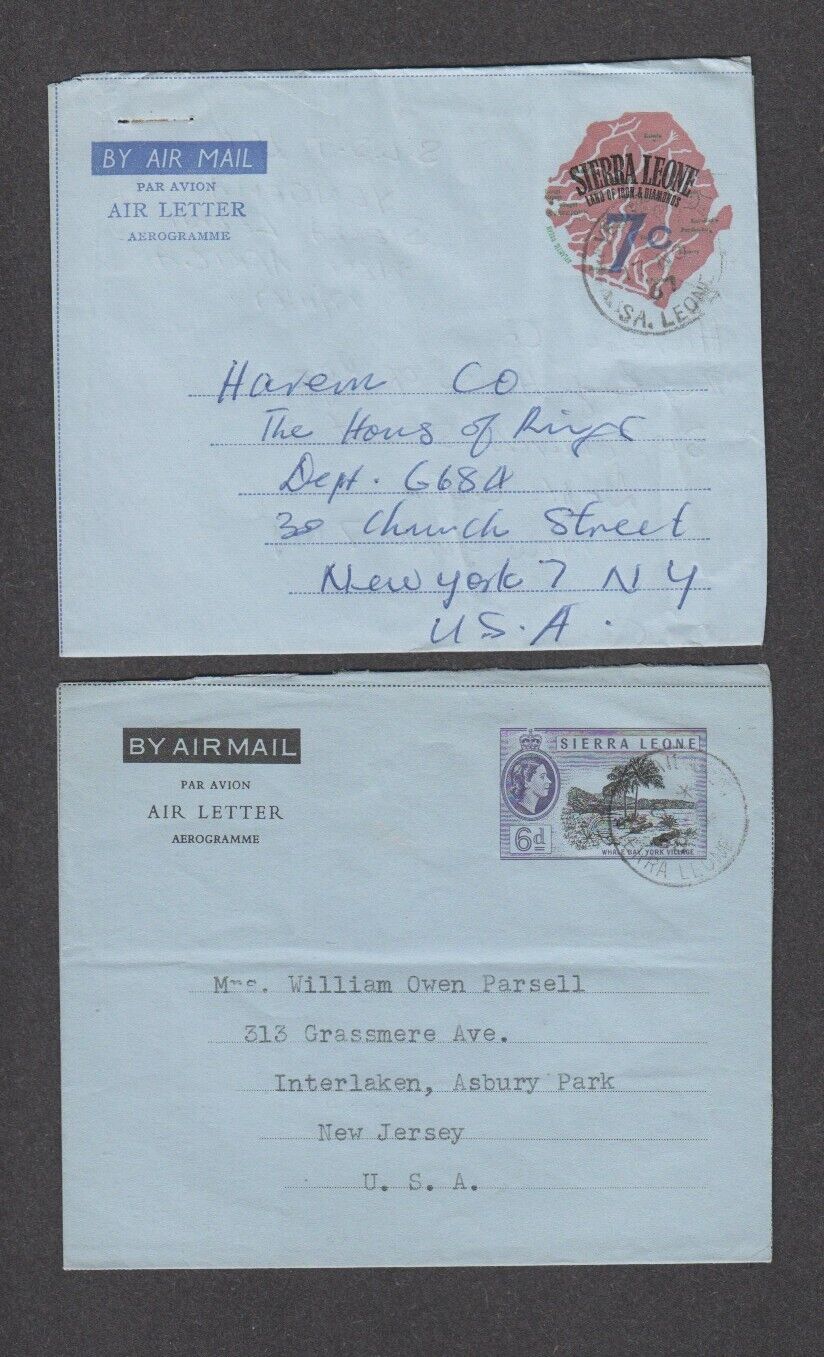 BY AIR MAIL
PAR AVION
AIR LETTER
AEROGRAMME
SIERRA LEONE
LAND OF IRON & DIAMONDS
7c
SA. LEONE
Harem Co
The Hous of Rings
Dept. G68A
30 Church Street
New York 7 N Y
U.S.A.
BY AIR MAIL
PAR AVION
AIR LETTER
AEROGRAMME
SIERRA LEONE
6d
WHALE BAY, YORK VILLAGE
LEONE
Mrs. William Owen Parsell
313 Grassmere Ave.
Interlaken, Asbury Park
New Jersey
U. S. A.